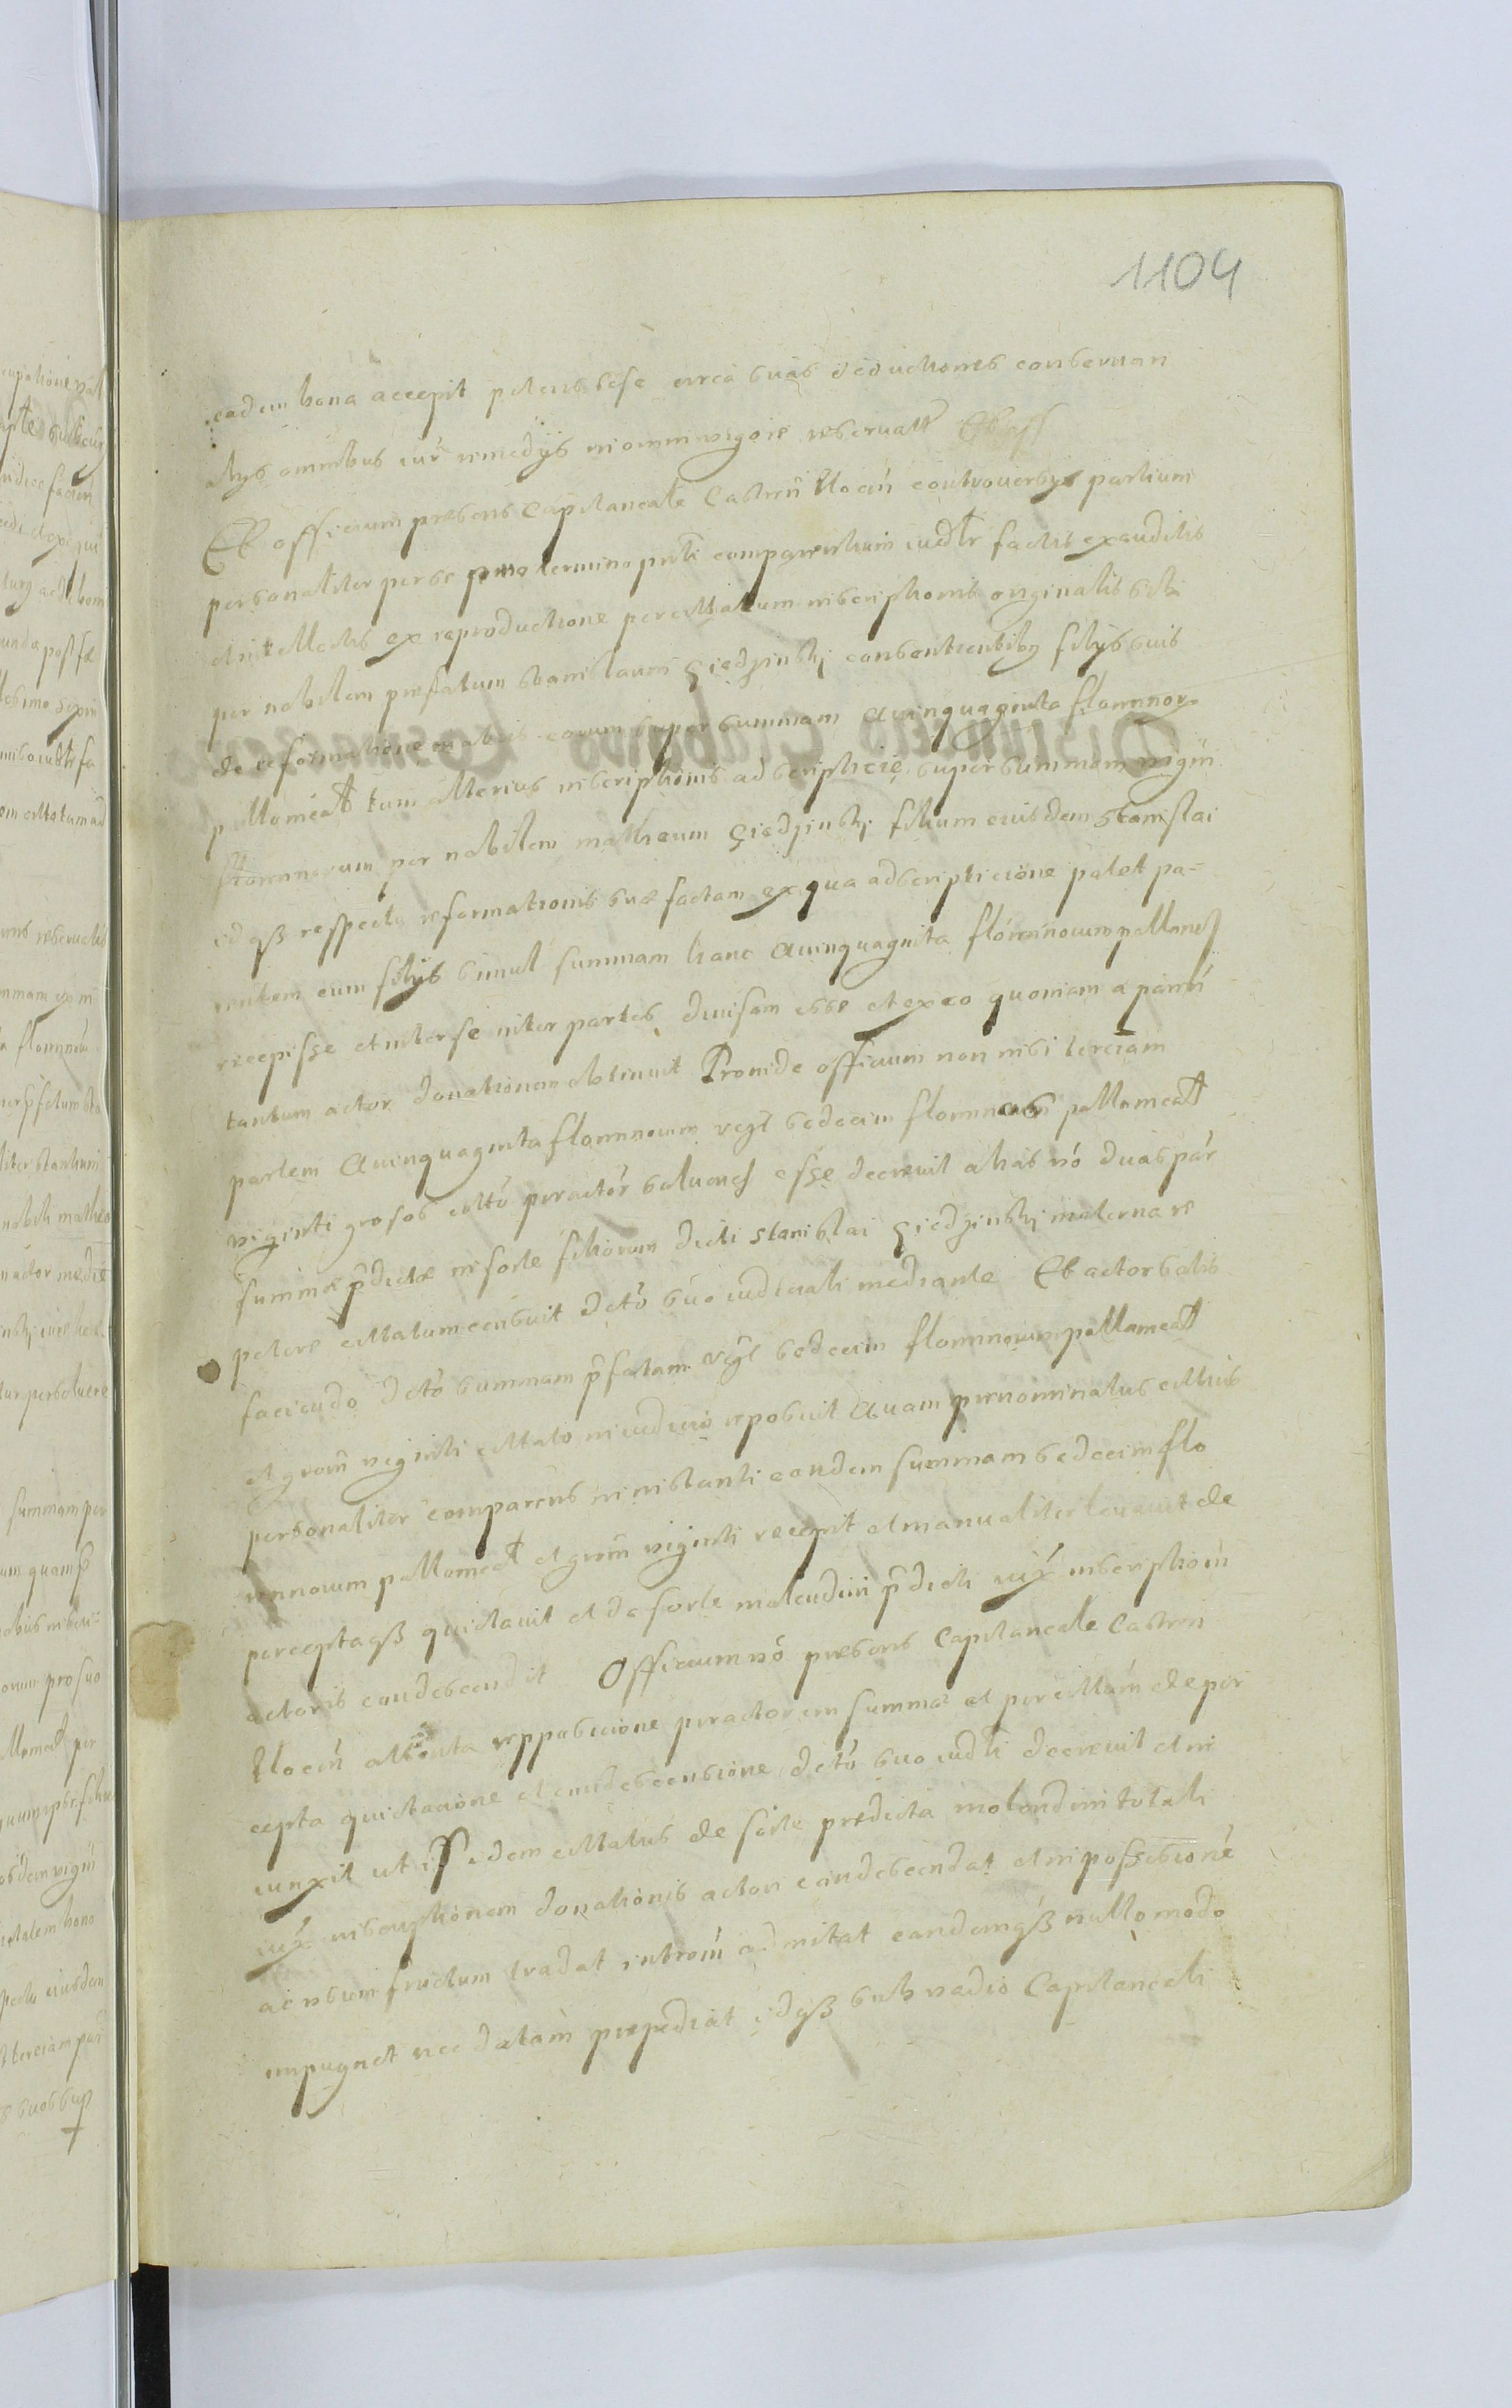 1104
eadem bona accepit petens sese circa suas deductiones conservari
alys omnibus iur remedys in omni vigore reservatt
Et officium presens Capitaneale Castren Plocen controversys partium
personaliter per se termino pnti comparentium iudtr factis exauditis
et intellectis ex reproductione per cittatum inscriptionis originalis
per nobilem prefatum Stanislaum Giedzinskj consentientiby filys suis
de reformatione eorum super summam Quinquaginta florinnor
pollomcat tum alterius inscriptionis adscripticie super summam viginti
florinnorum per nobilem matheum Giedzinskj filium eiusdem Stanislai
idqß respectu reformationis suæ factam ex qua adscripticione patet pa-
rentem cum filys simul summam hanc Quinquaginta florinnorum pollone
recepisse et inter se inter partes divisam esse et ex eo quoniam a parenti
tantum actor donationem obtinuit Proinde officium non nisi terciam
partem Quinquaginta florinnorum vcz sedecim florinnos pollomcat
viginti grosos citto per actor solvend esse decrevit alias vo duas par
summæ pdictæ in sorte filiorum dicti Stanislai Giedzinskj materna re
petere cittatum censuit dcto suo iudiciali mediante Et actor satis
faciendo dcto summam pfatam vcz sedecim florinnorum pollomcat
et grom viginti cittato in iudicio reposuit Quam prenominatus cittus
personaliter comparens in instanti eandem summam sedecim flo
rennorum pollomcat et grom viginti recepit et manualiter levavit de
perceptaqß quictavit et de sorte molendini pdicti iux inscriptioni
actoris condescendit Officium vo presens Capitaneale Castren
Plocen attenta reppositione per actorem summæ et per cittatum de per
cepta quictacione et condescensione dcto suo iudli decrevit et in
iunxit ut is idem cittatus de sorte predicta molendini totali
iux inscriptionem donationis actori condescendat et in possessione
ac usum fructum tradat introm admitat eandemqß nullo modo
impugnet nec datam prepediat idqß sub vadio Capitaneali